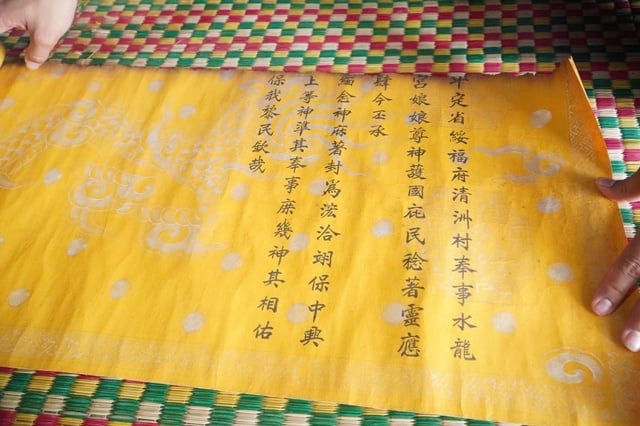 平定省綏福府清洲村奉事水龍
宮娘娘尊神護國庇民稔著靈應
肆今丕承
緬念神庥著封爲浤洽翊保中興
上等神準其奉事庶幾神其相佑
保我黎民欽哉